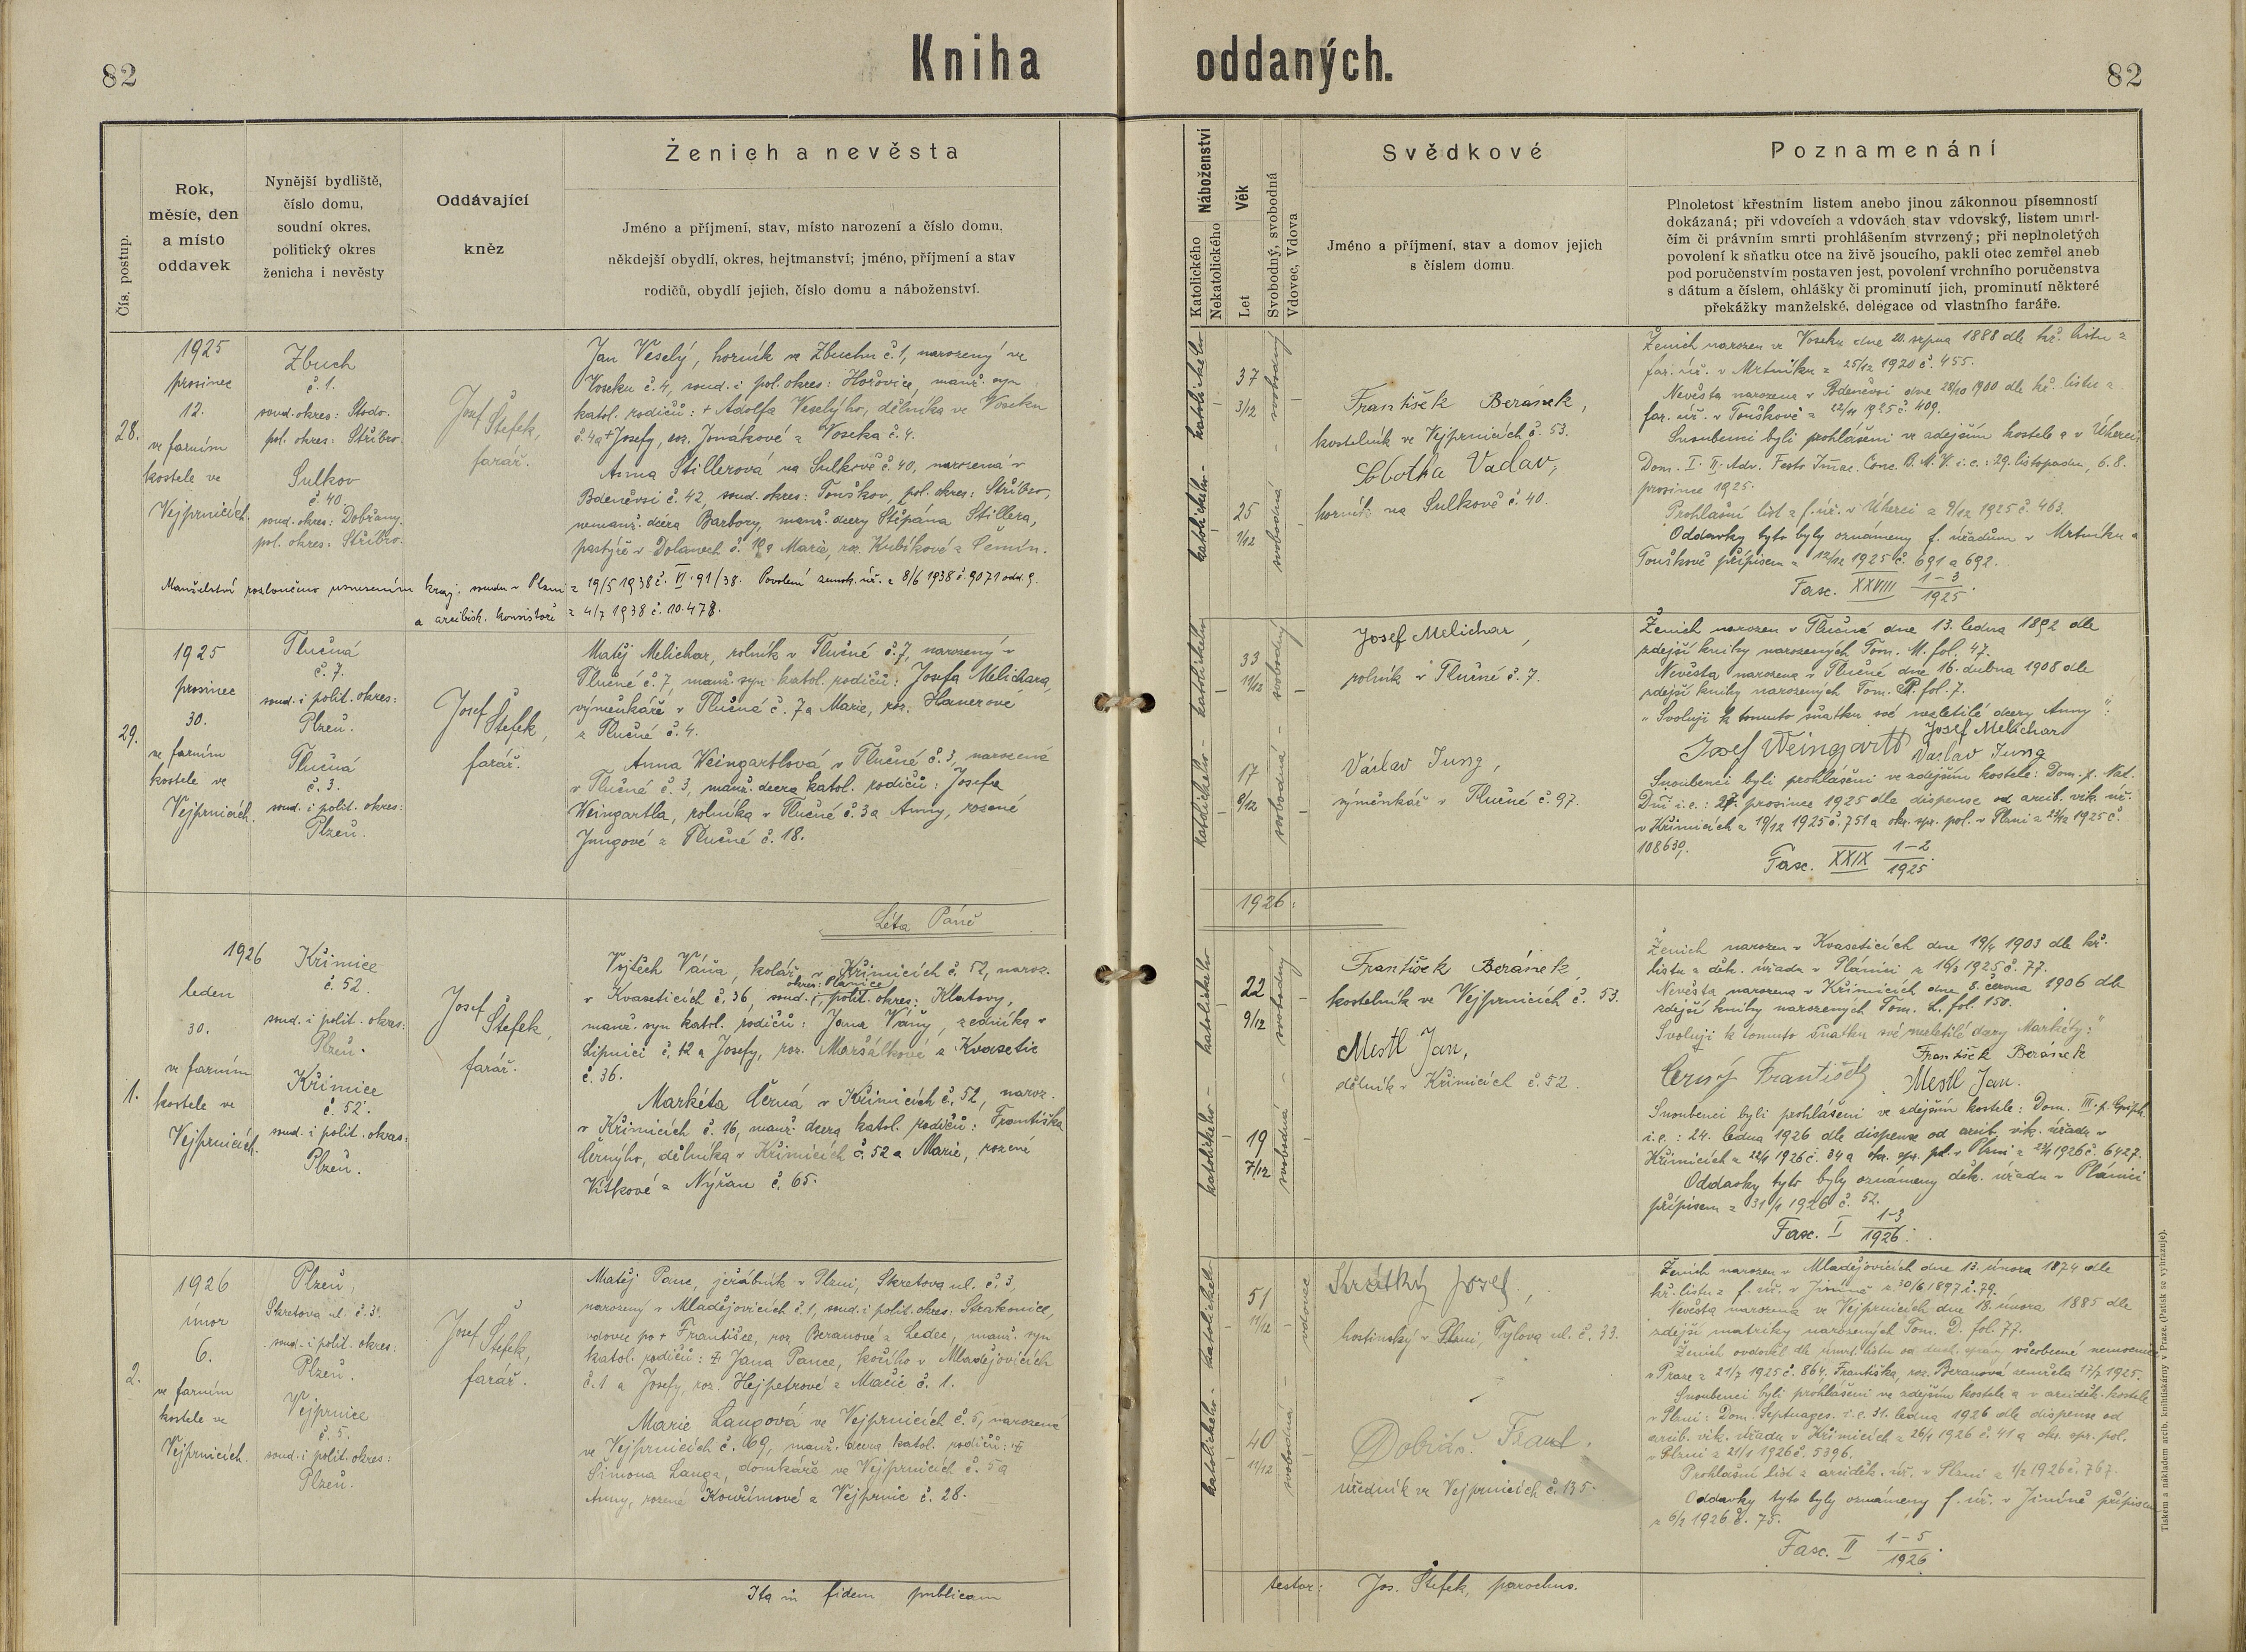 82
Kniha oddaných.
82
Čís. postup.
Rok,
měsíc, den
a místo
oddavek
Nynější bydliště,
číslo domu,
soudní okres,
politický okres
ženicha i nevěsty
Oddávající
kněz
Ženich a nevěsta
Jméno a příjmení, stav, místo narození a číslo domu,
někdejší obydlí, okres, hejtmanství; jméno, příjmení a stav
rodičů, obydlí jejich, číslo domu a náboženství.
Náboženství
Katolického
Nekatolického
Věk
Let
Svobodný, svobodná
Vdovec, Vdova
Svědkové
Jméno a příjmení, stav a domov jejich
s číslem domu.
Poznamenání
Plnoletost křestním listem anebo jinou zákonnou písemností
dokázaná; při vdovcích a vdovách stav vdovský, listem umrl-
čím či právním smrti prohlášením stvrzený; při neplnoletých
povolení k sňatku otce na živě jsoucího, pakli otec zemřel aneb
pod poručenstvím postaven jest, povolení vrchního poručenstva
s dátum a číslem, ohlášky či prominutí jich, prominutí některé
překážky manželské, delegace od vlastního faráře.
28.
1925
prosinec
12.
ve farním
kostele ve
Vejprnicích.
Zbuch
č. 1.
soud. okres: Stodo.
pol. okres: Stříbro.
Sulkov
č. 40
soud. okres: Dobřany.
pol. okres: Stříbro.
Josef Štefek,
farář.
Jan Veselý, horník ve Zbuchu č. 1, narozený ve
Voseku č. 4, soud. i pol. okres: Hořovice, manž. syn
katol. rodičů: + Adolfa Veselýho, dělníka ve Voseku
č. 4 a + Josefy, roz. Jonákové z Voseka č. 4.
Anna Stillerová na Sulkově č. 40, narozená v
Bdeněvsi č. 42 soud. okres: Touškov, pol. okres: Stříbro,
nemanž. dcera Barbory, manž. dcery Štěpána Stillera,
pastýře v Dolanech č. a Marie, roz. Kubíkové z Čemín.
Manželství rozloučeno usnesením kraj. soudu v Plzni z 19/5 1938 č. VI. 91/38. Povolení zemsk. úř. z 8/6 1938 č. 9071 odd. 9.
a arcibisk. konsistoře z 4/7 1938 č. 10.478.
katolického - katolického
37
3/12
25
1/12
svobodná - svobodný
František Beránek,
kostelník ve Vejprnicích č. 53.
Sobotka Vaclav,
horník na Sulkově č. 40.
Ženich narozen ve Voseku dne 20. srpna 1888 dle kř. listu z
far. úř. v Mrtníku z 25/12 1920 č. 455.
Nevěsta narozena v Bdeněvsi dne 28/10 1900 dle kř. listu z
far. úř. v Touškově z 22/11 1925 č. 409.
Snoubenci byli prohlášeni ve zdejším kostele a v Úherci
Dom. I. II. Adv. Festo Imac. Conc. B. M. V. i. e.: 29. listopadu, 6. 8.
prosince 1925.
Prohlašní list z f. úř. v Úherci z 9/12 1925 č. 463.
Oddavky tyto byly oznámeny f. úřadům v Mrtníku a
Touškově přípisem z 12/12 1925 č. 691 a 692.
Fasc. XXVIII 1-3/1925.
29.
1925
prosinec
30.
ve farním
kostele ve
Vejprnicích.
Tlučná
č. 7.
soud. i polit. okres:
Plzeň.
Tlučná
č. 3.
soud. i polit. okres:
Plzeň.
Josef Štefek,
farář.
Matěj Melichar, rolník v Tlučné č. 7, narozený v
Tlučné č. 7, manž. syn katol. rodičů: Josefa Melichara,
výměnkáře v Tlučné č. 7 a Marie, roz. Hanerové
z Tlučné č. 4.
Anna Weingartlová v Tlučné č. 3, narozená
v Tlučné č. 3, manž. dcera katol. rodičů: Josefa
Weingartla, rolníka v Tlučné č. 3 a Anny, rozené
Jungové z Tlučné č. 18.
katolického - katolického
33
11/12
17
8/12
svobodná - svobodný
Josef Melichar,
rolník v Tlučné č. 7.
Václav Jung,
výměnkář v Tlučné č. 97.
Ženich narozen v Tlučné dne 13. ledna 1892 dle
zdejší knihy narozených Tom. M. fol. 47.
Nevěsta narozena v Tlučné dne 16. dubna 1908 dle
zdejší knihy narozených Tom. fol. 7.
„Svoluji k tomuto sňatku své nezletilé dcery Anny":
Josef Melichar
Josef Weingartl Vaclav Jung
Snoubenci byli prohlášeni ve zdejším kostele: Dom. p. Nat.
Dni i. e.: 27. prosince 1925 dle dispense od arcib. vik. úř.
v Křimicích z 19/12 1925 č. 751 a okr. spr. pol. v Plzni z 1925 č.
108630.
Fasc. XXIX 1-2/1925.
Léta Páně 1926:
1.
1926
leden
30.
ve farním
kostele ve
Vejprnicích.
Křimice
č. 52.
soud. i polit. okres:
Plzeň.
Křimice
č. 52.
soud. i polit. okres:
Plzeň.
Josef Štefek,
farář.
Vojtěch Váňa, kolář v Křimicích č. 52, naroz.
okres: Plánice
v Kvaseticích č. 36, soud. i polit. okres: Klatovy,
manž. syn katol. rodičů: Jana Váňy, zedníka v
Lipnici č. 12 a Josefy, roz. Maršálkové z Kvasetic
č. 36.
Markéta Černá v Křimicích č. 52, naroz.
v Křimicích č. 16, manž. dcera katol. rodičů: Františka
Černýho, dělníka v Křimicích č. 52 a Marie, rozené
Vítkové z Nýřan č. 65.
katolického - katolického
22
9/12
19
7/12
svobodná - svobodný
František Beránek,
kostelník ve Vejprnicích č. 53.
Mestl Jan,
dělník v Křimicích č. 52.
Ženich narozen v Kvaseticích dne 19/4 1903 dle kř.
listu z děk. úřadu v Plánici z 16/3 1925 č. 77.
Nevěsta narozena v Křimicích dne 8. června 1906 dle
zdejší knihy narozených Tom. L. fol. 150.
Svoluji k tomuto sňatku své nezletilé dcery Markéty:"
František Beránek
Černý František Mestl Jan.
Snoubenci byli prohlášeni ve zdejším kostele: Dom. III. p. Epiph.
i. e.: 24. ledna 1926 dle dispense od arcib. vik. úřadu v
Křimicích z 22/1 1926 č. 34 a okr. spr. pol. v Plzni z 1926 č. 6427.
Oddavky tyto byly oznámeny děk. úřadu v Plánici
přípisem z 31/1 1926 č. 52.
Fasc. I 1-3/1926.
2.
1926
únor
6.
ve farním
kostele ve
Vejprnicích.
Plzeň,
Skretova ul. č. 3.
soud. i polit. okres:
Plzeň.
Vejprnice
č. 5.
soud. i polit. okres:
Plzeň.
Josef Štefek,
farář.
Matěj Panc, jeřábník v Plzni, Skretova ul. č. 3,
narozený v Mladějovicích č. 1, soud. i polit. okres: Strakonice,
vdovec po + Františce, roz. Beranové z Ledec, manž. syn
katol. rodičů: + Jana Pance, kočího v Mladějovicích
č. 1 a Josefy, roz. Hejpetrové z Mačic č. 1.
Marie Langová ve Vejprnicích č. 5, narozená
ve Vejprnicích č. 69, manž. dcera katol. rodičů: +
Šimona Langa, domkáře ve Vejprnicích č. 5 a
Anny, rozené Kouřimové z Vejprnic č. 28.
katolického - katolického
51
11/12
40
11/12
svobodná - vdovec
Krátký Josef,
hostinský v Plzni, Tylova ul. č. 33.
Frant.
úředník ve Vejprnicích č. 135.
Ženich narozen v Mladějovicích dne 13. února 1874 dle
kř. listu z f. úř. v Jiníně z 30/6 1897 č. 79.
Nevěsta narozena ve Vejprnicích dne 18. února 1885 dle
zdejší matriky narozených Tom. D. fol. 77.
Ženich ovdověl dle úmrt. listu od duch. správy všeobecné nemocnice
v Praze z 21/7 1925 č. 864. Františka, roz. Beranová zemřela 17/7 1925.
Snoubenci byli prohlášeni ve zdejším kostele a v arciděk. kostele
v Plzni: Dom. Septuages. i. e. 31. ledna 1926 dle dispense od
arcib. vik. úřadu v Křimicích z 26/1 1926 č. 41 a okr. spr. pol.
v Plzni z 21/1 1926 č. 5396.
Prohlašní list z arciděk. úř. v Plzni z 1/2 1926 č. 767.
Oddavky tyto byly oznámeny f. úř. v Jiníně přípisem
z 6/2 1926 č. 75.
Fasc. II 1-5/1926.
Ita in fidem publicam testor: Jos. Štefek, parochus.
Tiskem a nákladem arcib. knihtiskárny v Praze. (Patisk se vyhrazuje).